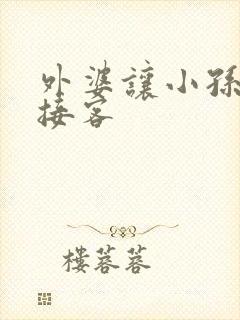 外婆讓小孫
接客
樓蓉蓉